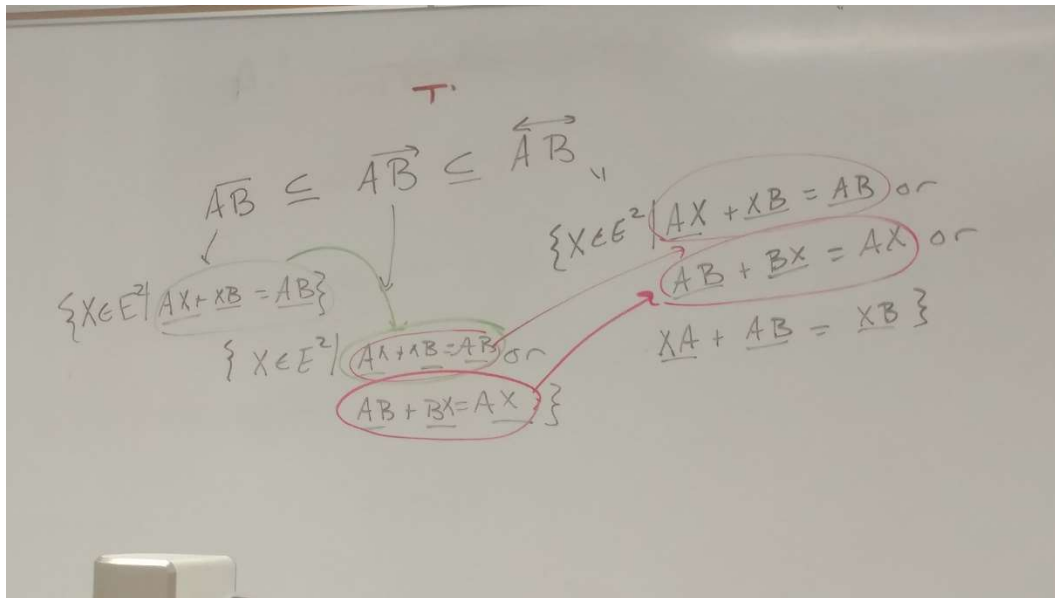 T.
A̅B̅ ⊆ A⃗B⃗ ⊆ A⃡B⃡
{X∈E²| AX + XB = AB}
{X∈E²| AX + XB = AB or
AB + BX = AX }
{X∈E²| AX + XB = AB or
AB + BX = AX or
XA + AB = XB }